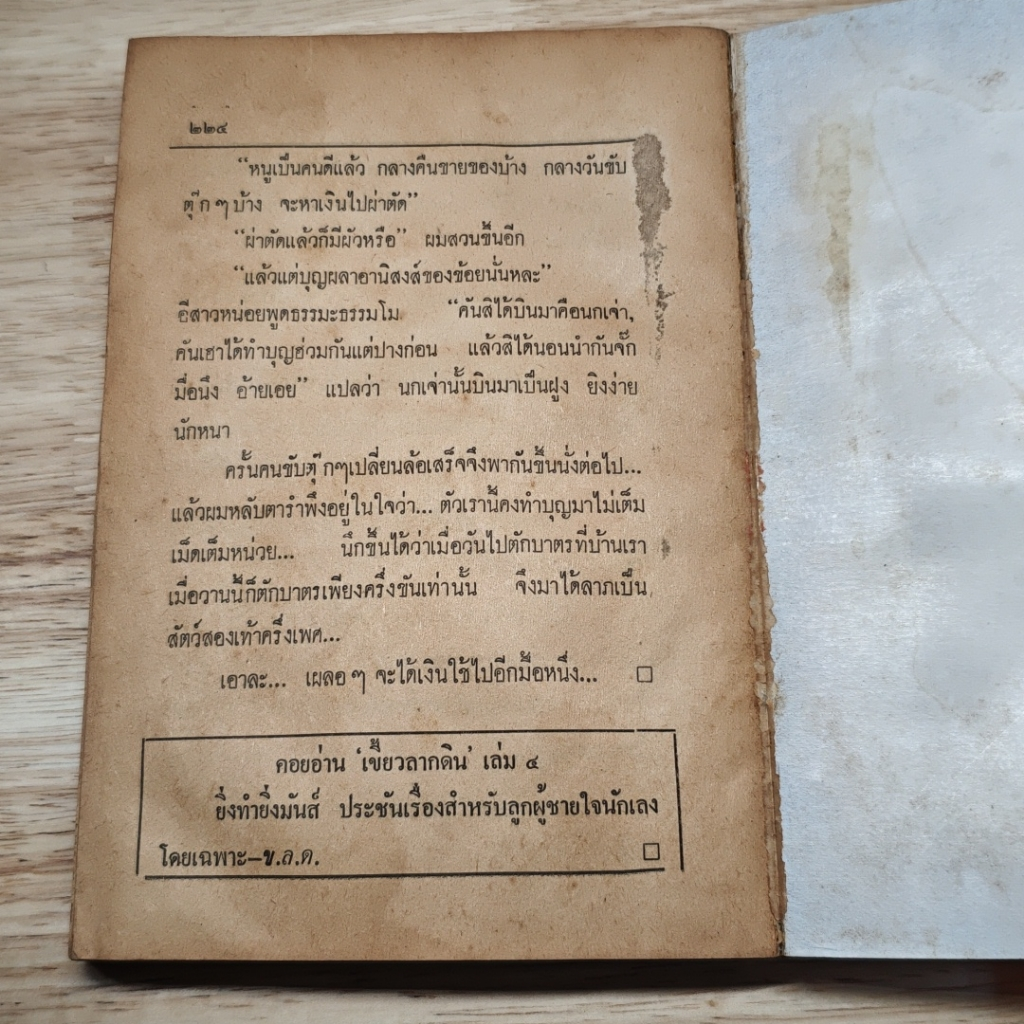 ๒๒๔
“หนูเป็นคนดีแล้ว กลางคืนขายของบ้าง กลางวันขับ
ตุ๊ก ๆ บ้าง จะหาเงินไปผ่าตัด”
“ผ่าตัดแล้วก็มีผัวหรือ” ผมสวนขึ้นอีก
“แล้วแต่บุญผลาอานิสงส์ของข้อยนั่นหละ”
อีสาวหน่อยพูดธรรมะธรรมโม “คันสิได้บินมาคือนกเจ่า,
คันเฮาได้ทำบุญฮ่วมกันแต่ปางก่อน แล้วสิได้นอนนำกันจั๊ก
มื่อนึง อ้ายเอย” แปลว่า นกเจ่านั้นบินมาเป็นฝูง ยิงง่าย
นักหนา
ครั้นคนขับตุ๊กๆเปลี่ยนล้อเสร็จจึงพากันขึ้นนั่งต่อไป...
แล้วผมหลับตารำพึงอยู่ในใจว่า... ตัวเรานี้คงทำบุญมาไม่เต็ม
เม็ดเต็มหน่วย... นึกขึ้นได้ว่าเมื่อวันไปตักบาตรที่บ้านเรา
เมื่อวานนี้ก็ตักบาตรเพียงครึ่งขันเท่านั้น จึงมาได้ลาภเป็น
สัตว์สองเท้าครึ่งเพศ...
เอาละ... เผลอ ๆ จะได้เงินใช้ไปอีกมื้อหนึ่ง... □
คอยอ่าน ‘เขี้ยวลากดิน’ เล่ม ๔
ยิ่งทำยิ่งมันส์ ประชันเรื่องสำหรับลูกผู้ชายใจนักเลง
โดยเฉพาะ—ข.ล.ด. □